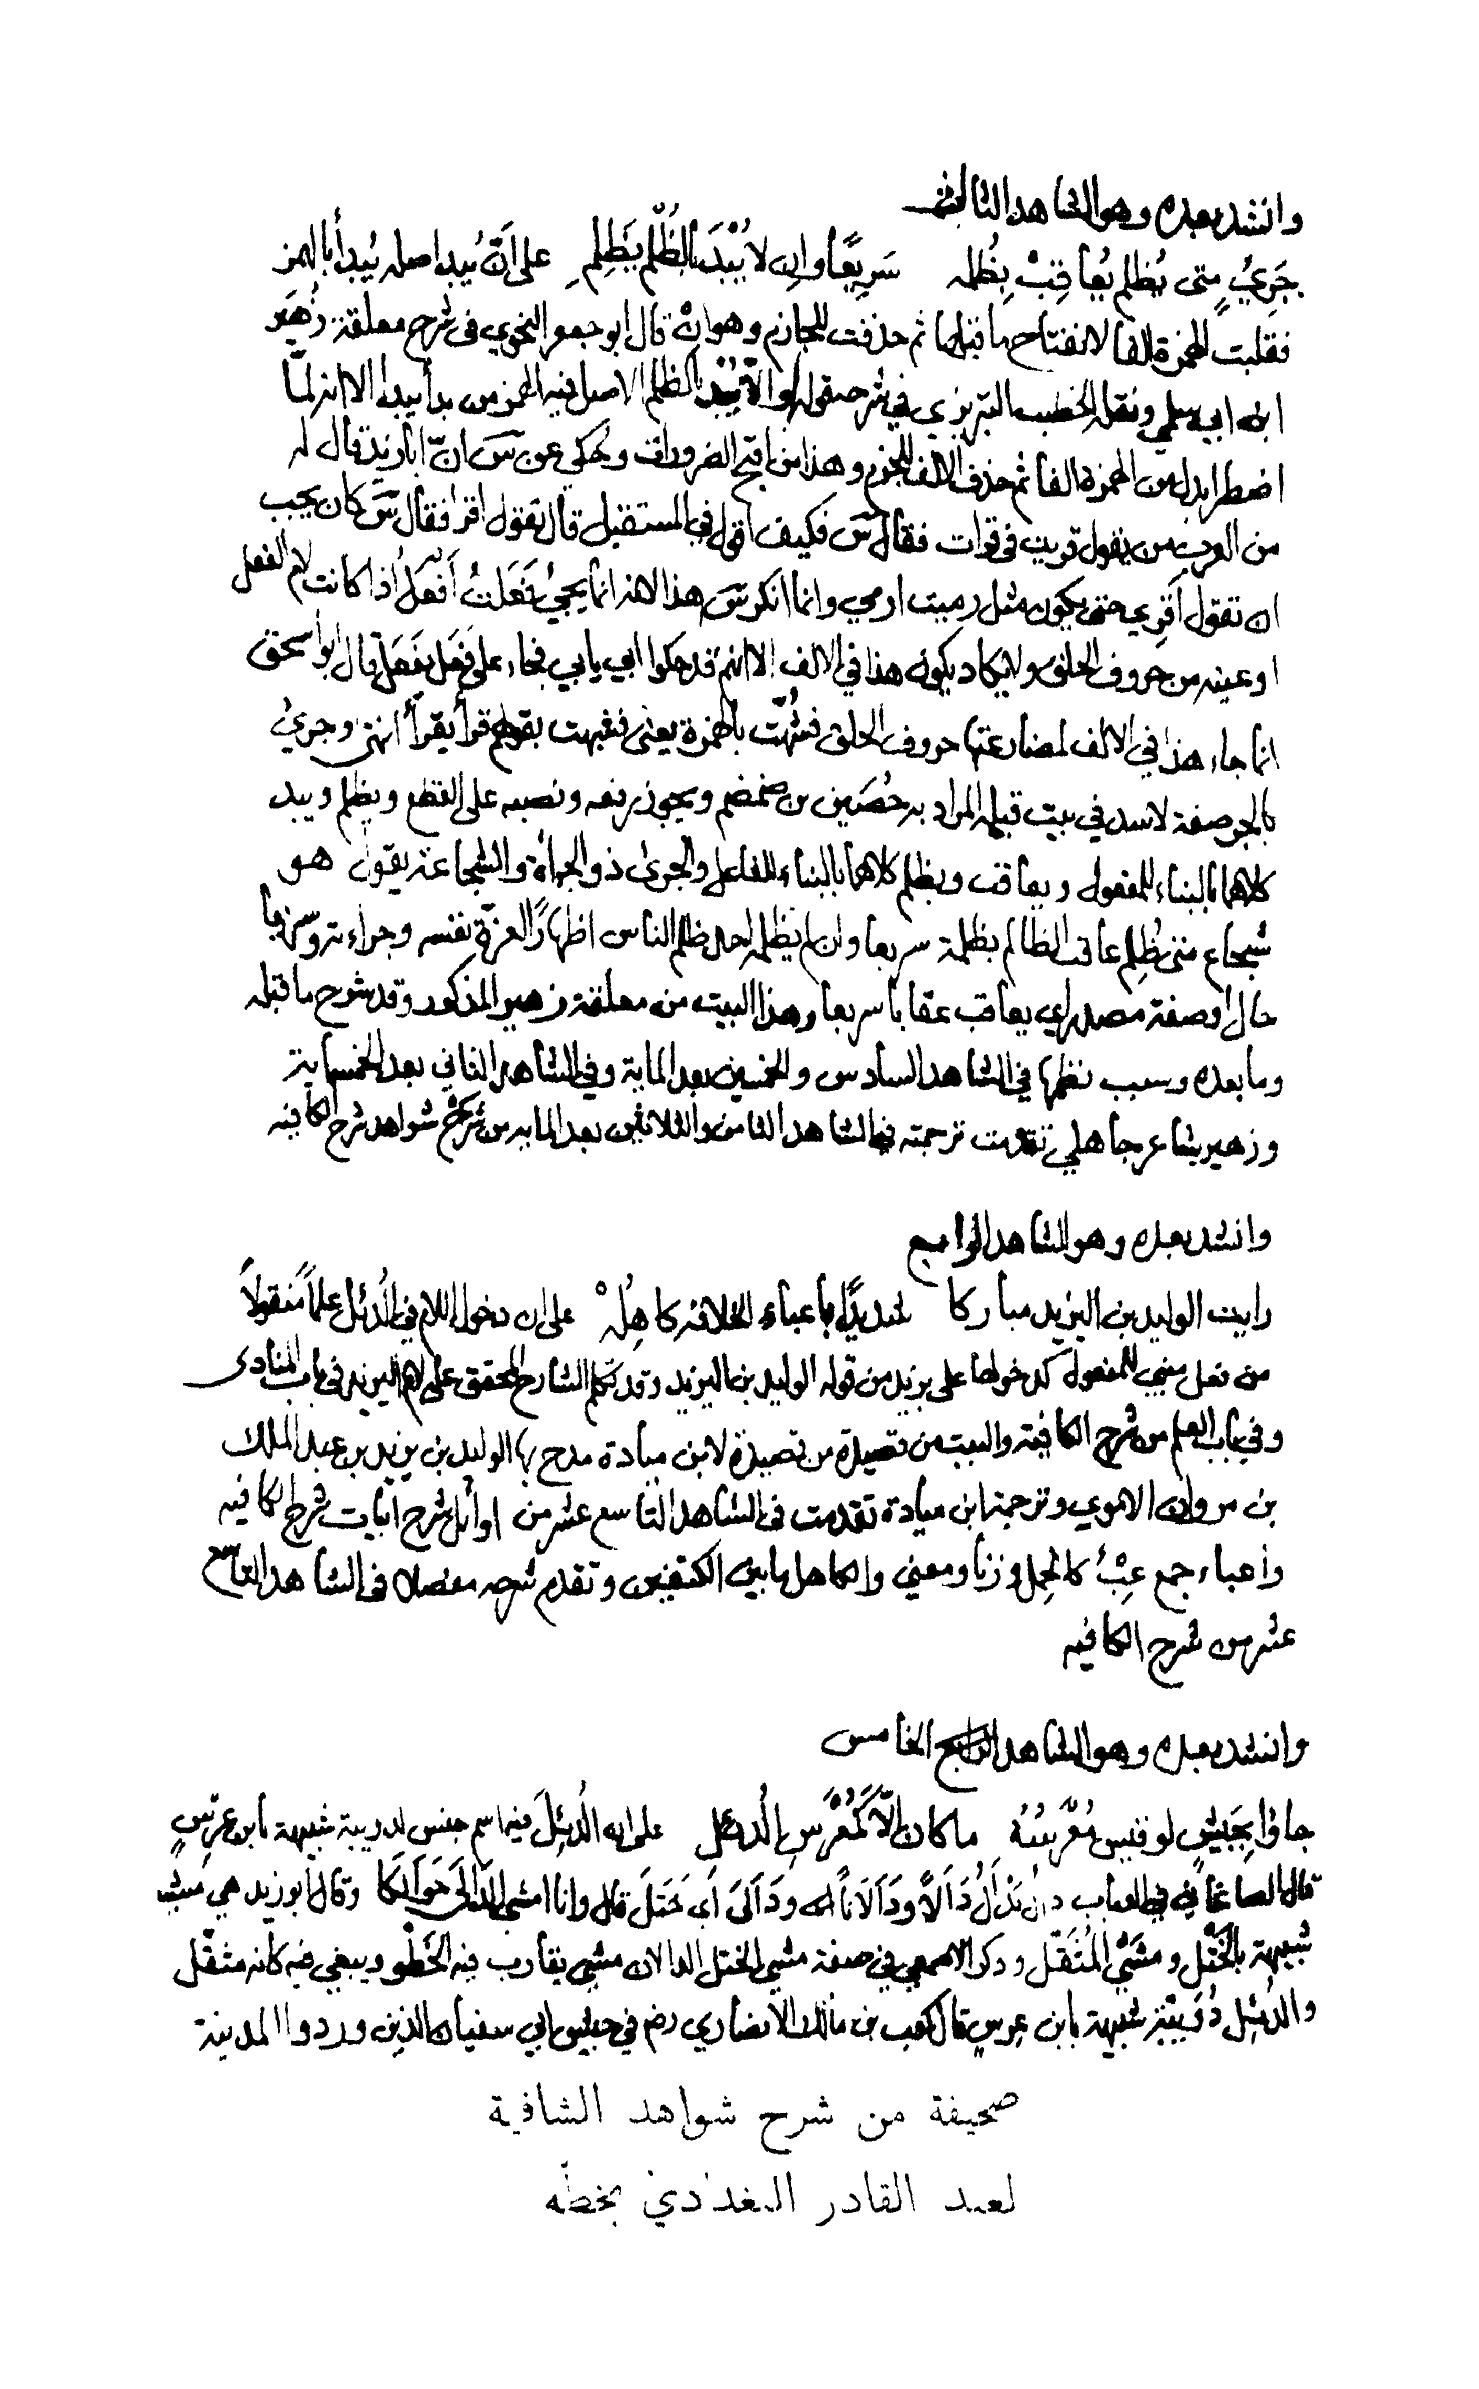 وانشد بعده وهو الشاهد الثالث
جَرِيءٍ متى يُظلم يُعاقِبْ بِظُلمه سَرِيعًا وانِ لا يُبْدَ بالظُلْم يَظْلِمِ على اَنّ يُبد اصله يُبدأ بالهمز
فقلبت الهمزة الفا لانفتاح ما قبلها ثم حذفت للجازم وهو اِنْ قال ابو جعفر النحوي فى شرح معلقة زُهَير
ابن ابى سلمى ونقله الخطيب التبريزي في شرحه قوله والاّ يُبْدَ بالظلم الاصل فيه الهمز من بدأ يبدأ الا انه لمّا
اضطر ابدل من الهمزة الفا ثم حذف الالف للجزم وهذا من اقبح الضرورات وحكي عن سَ انّ ابا زيد قال له
من العرب من يقول قريت فى قرات فقال سَ فكيف اقول في المستقبل قال تقول اقرا فقال سَ كان يجب
ان تقول اَقرِي حتى يكون مثل رميت ارمي وانما انكر سَ هذا لانه انما يجيُ فَعَلتُ اَفْعَلُ اذا كانت لام الفعل
او عينه من حروف الحلق ولا يكاد يكون هذا في الالف الا انهم قد حكوا ابى يابي فجاء على فَعَل يفعَل قال ابو اسحق
انما جاء هذا في الالف لمضارعتها حروف الحلق فشُبّهت بالهمزة يعنى فشبهت بقولهم قرأ يقرأ انتهى وجريُ
بالجر صفة لاسد في بيت قبله المراد به حُصَين بن ضمضم ويجوز رفعه ونصبه على القطع ويظلم ويبد
كلاهما بالبناء للمفعول ويعاقب ويظلم كلاهما بالبناء للفاعل والجرئ ذو الجرأة والشجاعة يقول هو
شجاع متى ظُلِم عاقب الظالم بظلمه سريعا وان لم يظلمه احد ظلم الناس اظهارًا لعزّة نفسه وجراءته وسريعا
حال او صفة مصدر اي يعاقب عقابا سريعا وهذا البيت من معلقة زهير المذكور وقد شرح ما قبله
وما بعده وسبب نظمها في الشاهد السادس والخمسين بعد الماية وفي الشاهد الثاني بعد الخمسماية
وزهير شاعر جاهلي تقدمت ترجمته في الشاهد الثامن والثلاثين بعد الماية من شرح شواهد شرح الكافيه
وانشد بعده وهو الشاهد الرابع
رايت الوليد بن اليزيد مباركا شديدًا باعباء الخلافة كاهِلُهْ على ان دخول اللام في الدُئل علماً منقولاً
من فعل مبني للمفعول كدخولها على يزيد من قوله الوليد بن اليزيد وقد تكلم الشارح المحقق على لام اليزيد فى باب المنادى
وفي باب العلم من شرح الكافية والبيت من قصيدة من قصيدة لابن ميادة مدح بها الوليد بن يزيد بن عبد الملك
بن مروان الاموي وترجمة ابن ميادة تقدمت فى الشاهد التاسع عشر من اوائل شرح ابيات شرح الكافيه
واعباء جمع عِبْءُ كالحِمل وزنا ومعنى والكاهل ما بين الكتفين وتقدم شرحه مفصلا فى الشاهد التاسع
عشر من شرح الكافيه
وانشد بعده وهو الشاهد الخامس
جاؤا بِجَيشٍ لو قيس مُعْرَسُهُ ما كان اِلاَّ كمُعْرَسِ الدُئل على ان الدُئِل فيه اسم جنس لدويبة شبيهة بابن عِرْسٍ
قال الصاغاني في العباب دأل يَدْأَلُ دَأْلاً ودَأَلَاناً ودَأَلَى اَى خَتَلَ قال وانا امشى الدَّأَلَى حَوَالَكا وقال ابو زيد هى مشية
شبيهة بالخَتْل ومَشْيُ المُثقَل وذكر الاصمعي في صفة مشي الخيل الدالان مشي يقارب فيه الخَطْو ويبغي فيه كانه مثقَل
والدُئِل دُوَيْبّة شبيهة بابن عِرسٍ قال كعب بن مالك الانصاري رضه في جيش ابي سفيان الذين وردوا المدينة
صحيفة من شرح شواهد الشافية
لعبد القادر البغدادي بخطّه